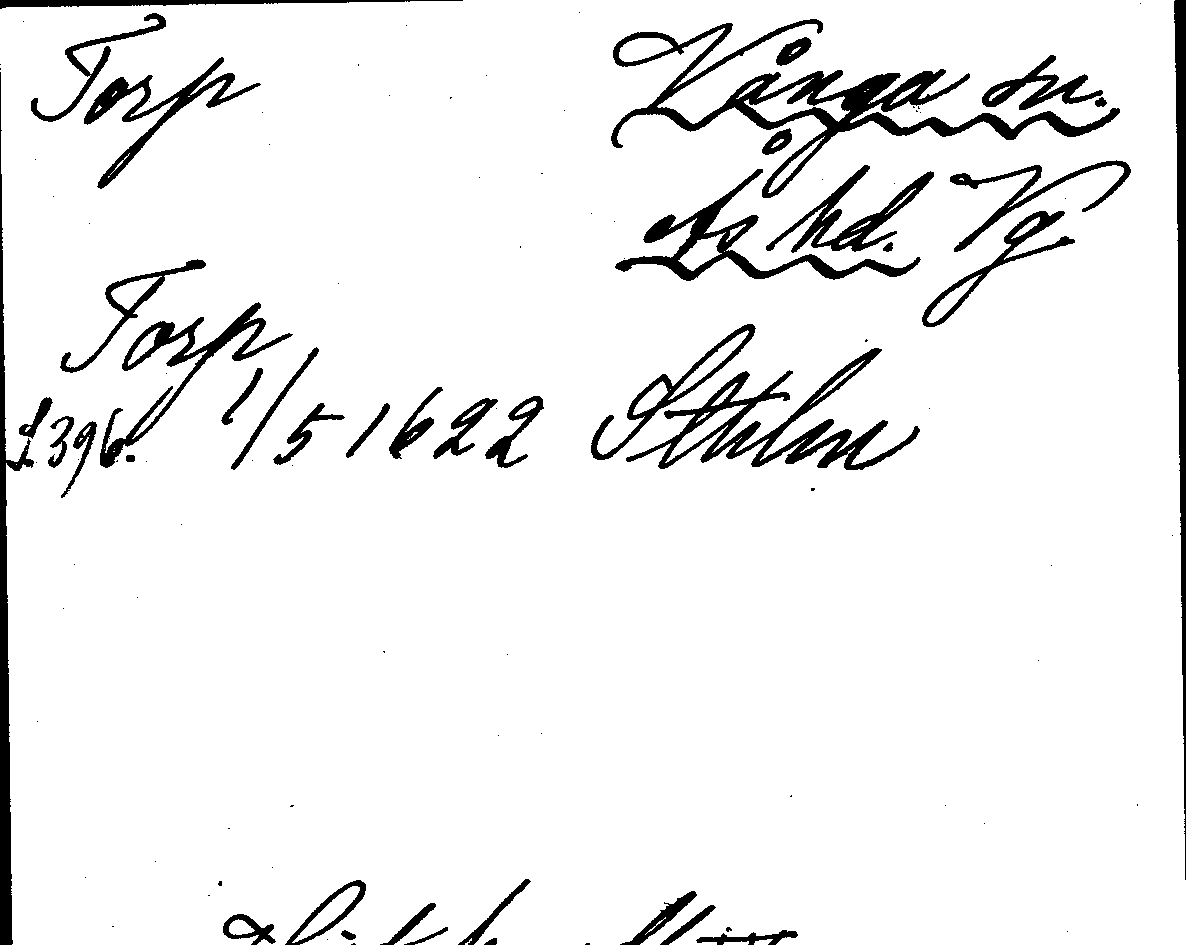 Torp Vånga sn.
Ås hd. Vg.
Torp
f. 396. 1/5 1622 Sthlm